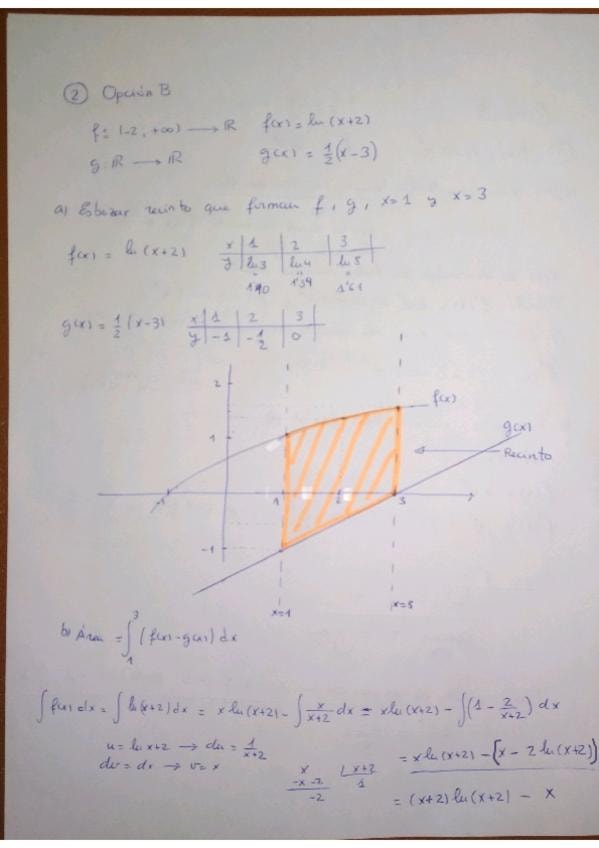 ② Opción B
f: (-2, +∞) ⟶ ℝ f(x) = ln (x+2)
g: ℝ ⟶ ℝ g(x) = 1/2 (x-3)
a) Esbozar recinto que forman f, g, x=1 y x=3
f(x) = ln (x+2) x | 1 | 2 | 3
y | ln 3 | ln 4 | ln 5
1'10 1'39 1'61
g(x) = 1/2 (x-3) x | 1 | 2 | 3
y | -1 | -1/2 | 0
2
f(x)
1
g(x)
Recinto
-1 1 2 3
-1
x=1 x=3
b) Área = ∫₁³ (f(x) - g(x)) dx
∫ f(x) dx = ∫ ln(x+2) dx = x ln (x+2) - ∫ x/(x+2) dx = x ln (x+2) - ∫ (1 - 2/(x+2)) dx
u = ln x+2 → du = 1/(x+2)
dv = dx → v = x
x | x+2
-x -2 1
-2
= x ln (x+2) - [x - 2 ln (x+2)]
= (x+2) ln (x+2) - x